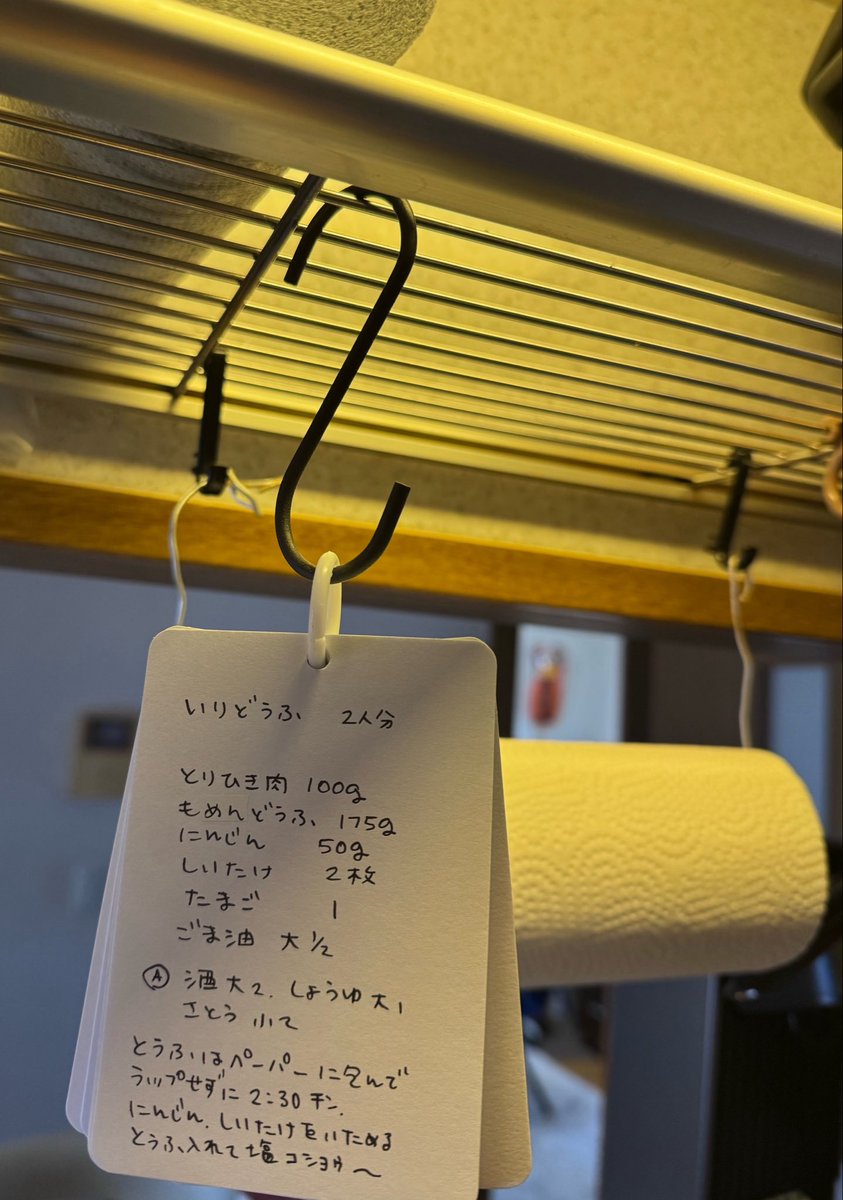 いりどうふ 2人分
とりひき肉 100g
もめんどうふ 175g
にんじん 50g
しいたけ 2枚
たまご 1
ごま油 大 1/2
Ⓐ 酒大2. しょうゆ大1
さとう 小2
とうふはペーパーに包んで
ラップせずに 2:30 チン.
にんじん. しいたけをいためる
とうふ入れて塩コショウ〜